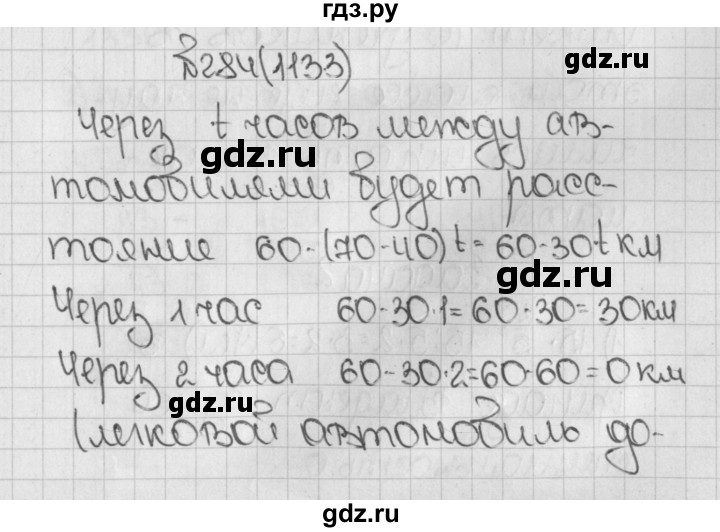 гдз.ру
№284(1133)
gdz.ru
Через t часов между ав-
gdz.ru
томобилями будет расс-
тояние 60-(70-40)t=60-30t км
gdz.ru
Через 1 час 60-30·1=60-30=30км
Через 2 часа 60-30·2=60-60=0 км
gdz.ru
(легковой автомобиль до-
gdz.ru
gdz.ru